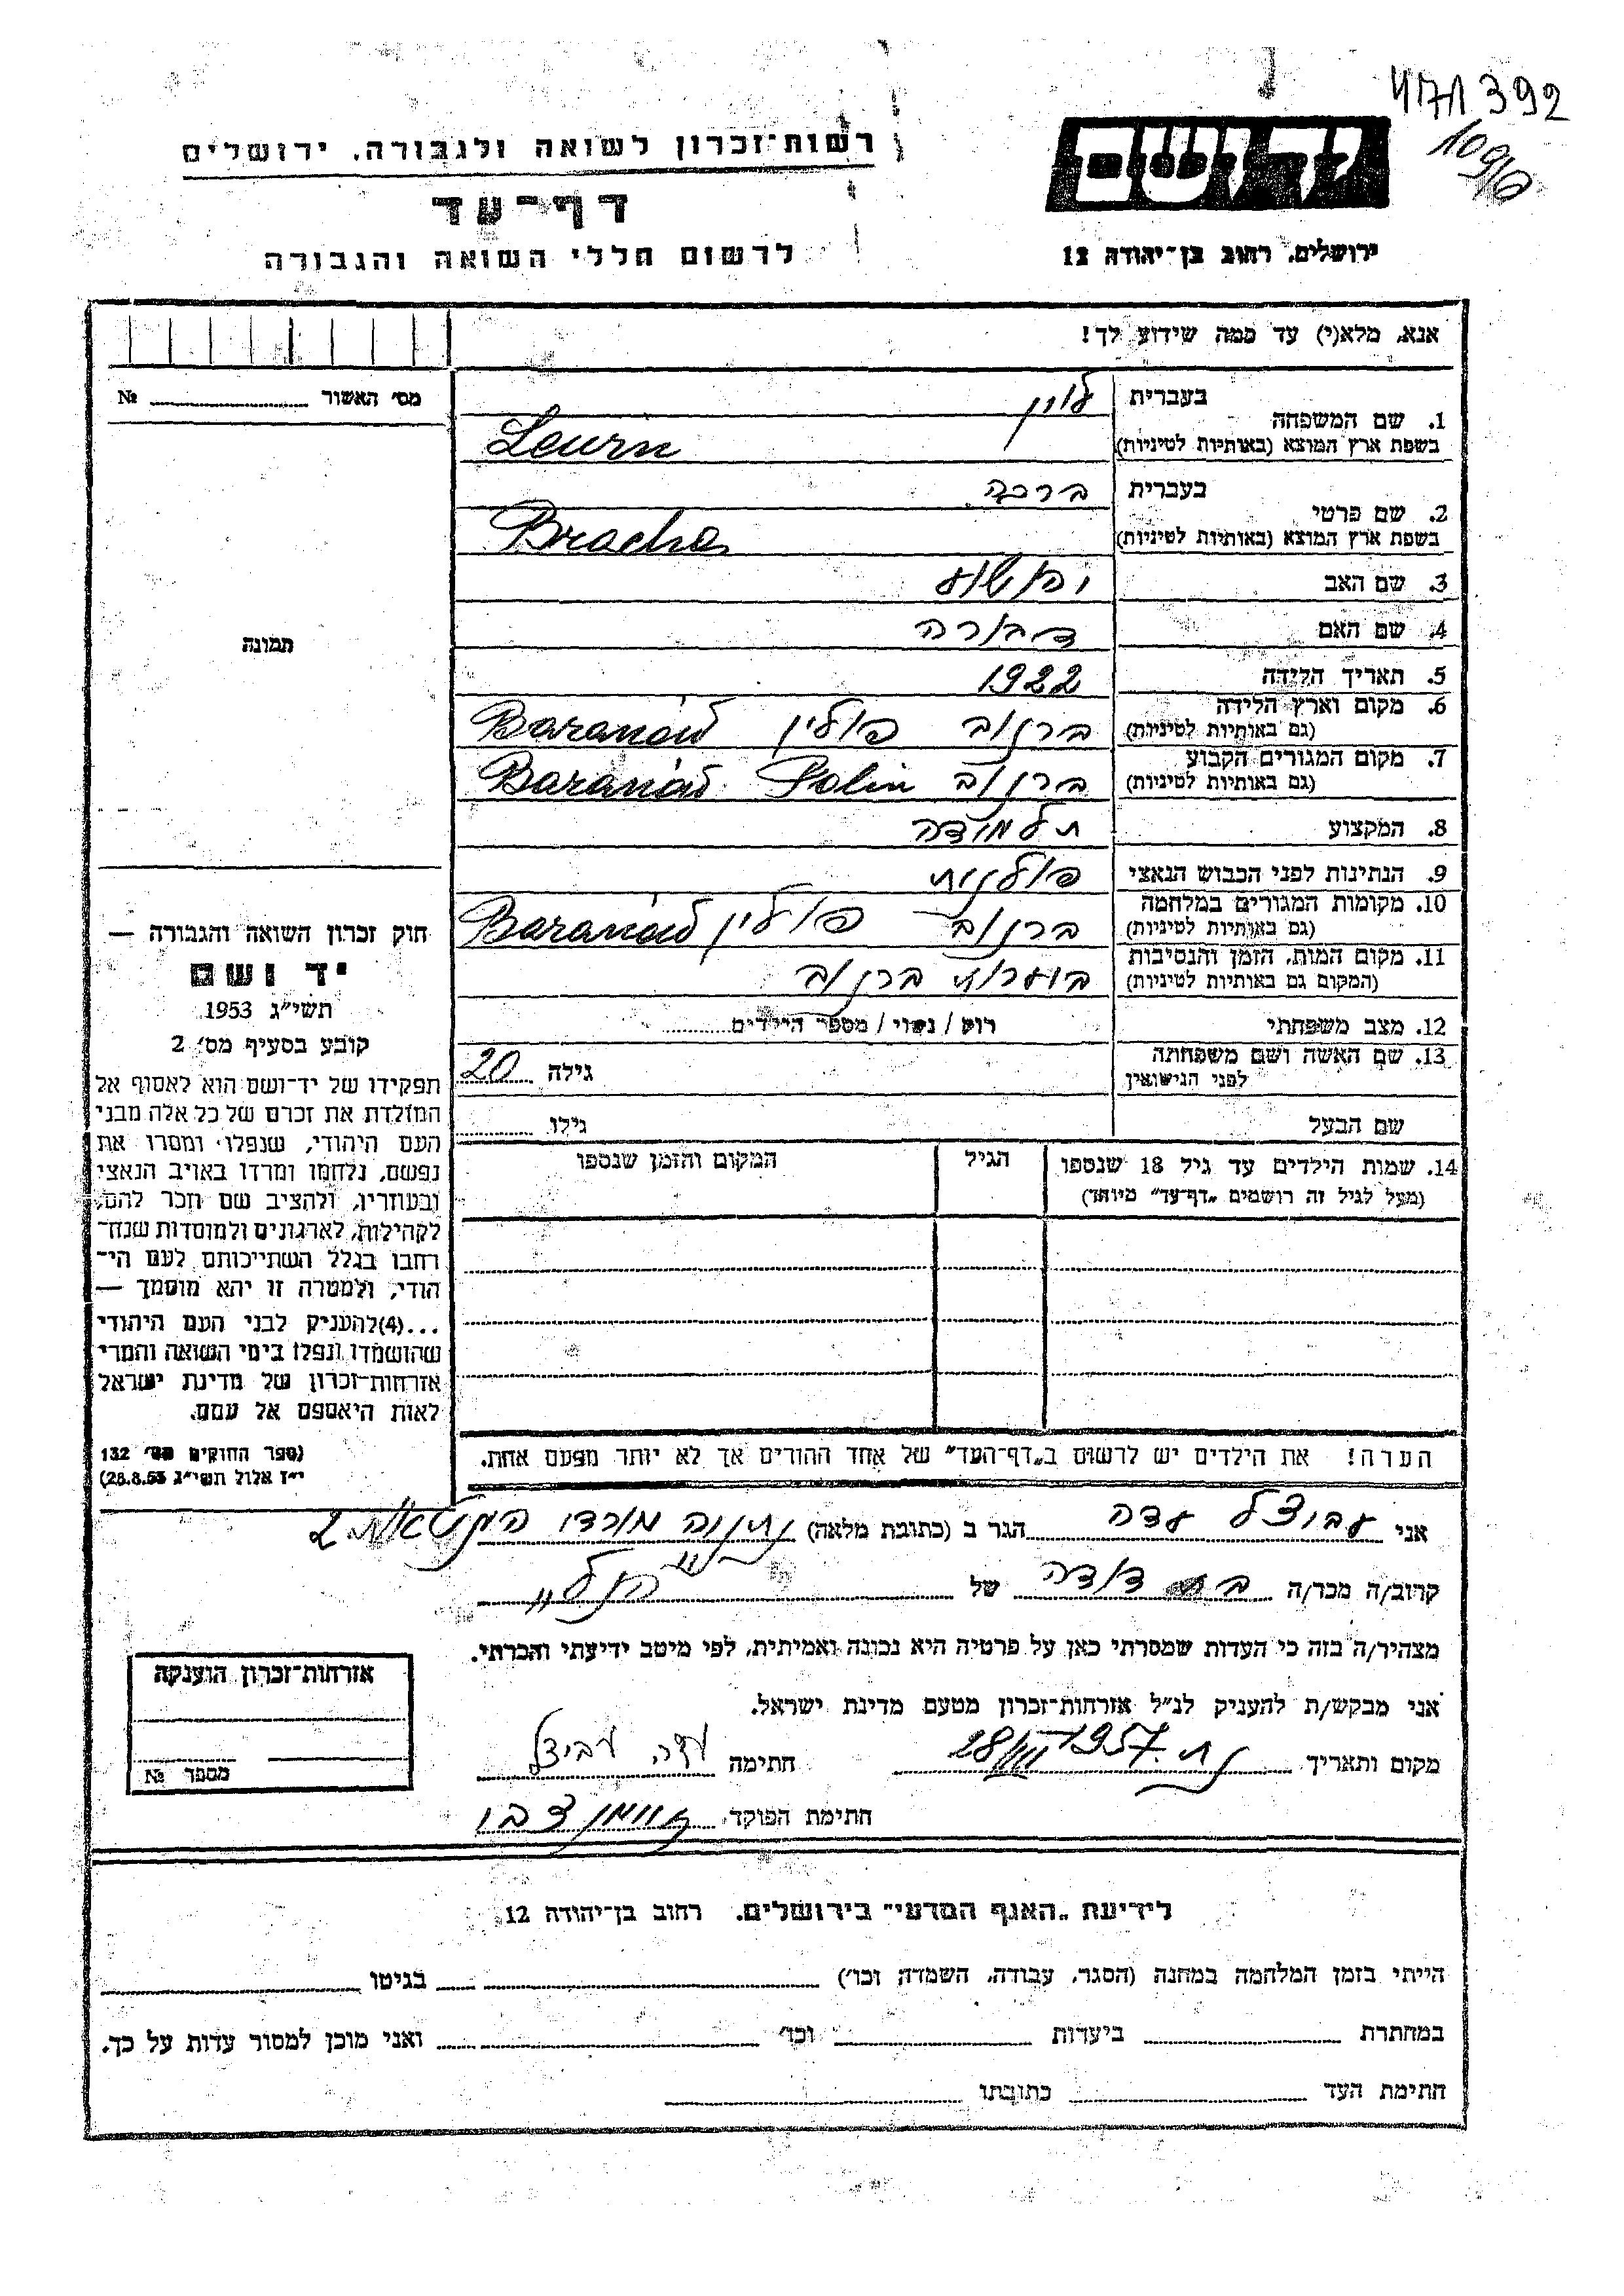 471392
109/6
רשות־זכרון לשואה ולגבורה, ירושלים
דף־עד
לרשום חללי השואה והגבורה
יד ושם
ירושלים, רחוב בן־יהודה 12
אנא, מלא(י) עד כמה שידוע לך!
מס׳ האשור № 
1. שם המשפחה בעברית לוין
בשפת ארץ המוצא (באותיות לטיניות) Lewin
2. שם פרטי בעברית ברכה
בשפת ארץ המוצא (באותיות לטיניות) Bracha
3. שם האב יהושע
4. שם האם דבורה
5. תאריך הלידה 1922
6. מקום וארץ הלידה (גם באותיות לטיניות) ברנוב פולין Baranów
7. מקום המגורים הקבוע (גם באותיות לטיניות) ברנוב Polin Baranów
8. המקצוע תלמידה
9. הנתינות לפני הכבוש הנאצי פולנית
10. מקומות המגורים במלחמה (גם באותיות לטיניות) ברנוב פולין Baranów
11. מקום המות, הזמן והנסיבות (המקום גם באותיות לטיניות) ביערות ברנוב
12. מצב משפחתי רווק / נשוי / מספר הילדים
13. שם האשה ושם משפחתה לפני הנישואין גילה 20
שם הבעל גילו
14. שמות הילדים עד גיל 18 שנספו הגיל המקום והזמן שנספו
(מעל לגיל זה רושמים „דף־עד״ מיוחד)
הערה! את הילדים יש לרשום ב„דף־העד״ של אחד ההורים אך לא יותר מפעם אחת.
תמונה
חוק זכרון השואה והגבורה —
יד ושם
תשי״ג 1953
קובע בסעיף מס׳ 2
תפקידו של יד־ושם הוא לאסוף אל
המולדת את זכרם של כל אלה מבני
העם היהודי, שנפלו ומסרו את
נפשם, נלחמו ומרדו באויב הנאצי
ובעוזריו, ולהציב שם וזכר להם,
לקהילות, לארגונים ולמוסדות שנח־
רבו בגלל השתייכותם לעם הי־
הודי, ולמטרה זו יהא מוסמך —
...(4)להעניק לבני העם היהודי
שהושמדו ונפלו בימי השואה והמרי
אזרחות־זכרון של מדינת ישראל
לאות היאספם אל עמם.
(ספר החוקים מס׳ 132
י״ז אלול תשי״ג 28.8.53)
אני עדה הגר ב (כתובת מלאה) נתניה מורדי הגיטאות 2
קרוב/ה מכר/ה בת דודה של הנ״ל
מצהיר/ה בזה כי העדות שמסרתי כאן על פרטיה היא נכונה ואמיתית, לפי מיטב ידיעתי והכרתי.
אני מבקש/ת להעניק לנ״ל אזרחות־זכרון מטעם מדינת ישראל.
מקום ותאריך 1957 חתימה עדה
חתימת הפוקד
אזרחות־זכרון הוענקה
מספר №
לידיעת „האגף המדעי״ בירושלים, רחוב בן־יהודה 12
הייתי בזמן המלחמה במחנה (הסגר, עבודה, השמדה, וכו׳) בגיטו
במחתרת ביערות וכו׳ ואני מוכן למסור עדות על כך.
חתימת העד כתובתו